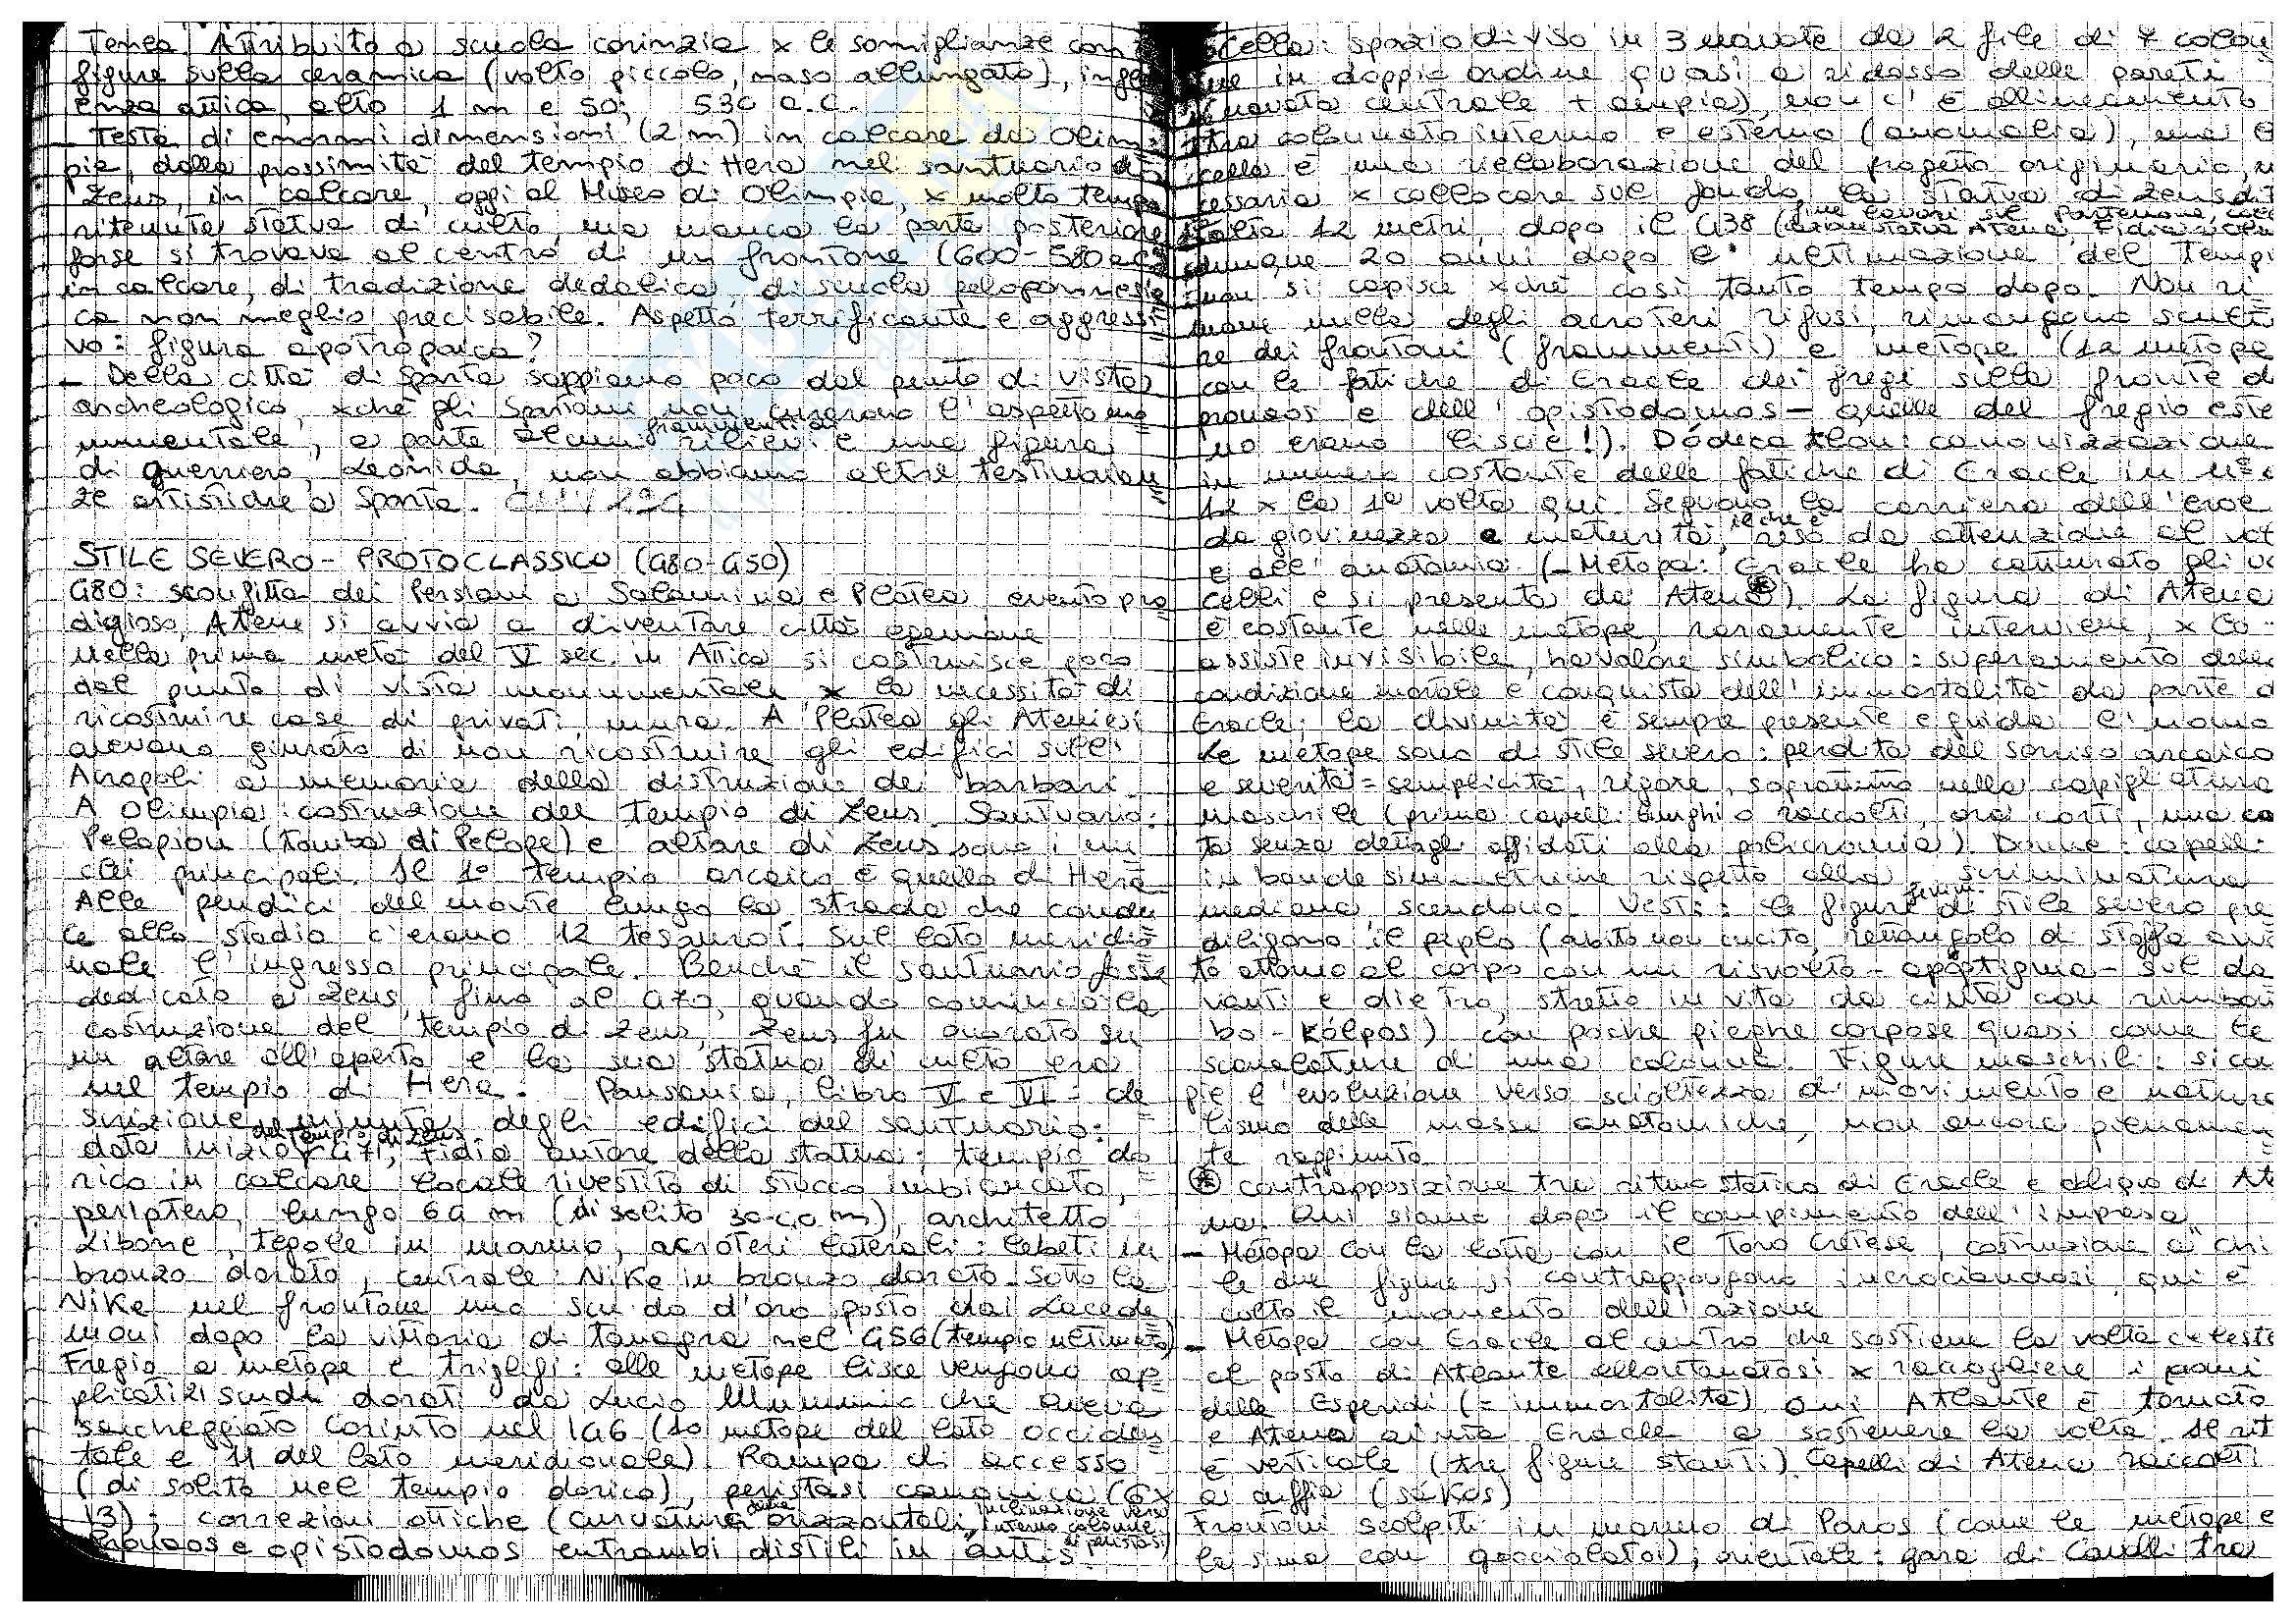 Tenea. Attribuito a scuola corinzia x le somiglianze con
figure sulla ceramica (volto piccolo, naso allungato), influ
enza attica, alto 1 m e 50; 530 a.C.
- Testa di enormi dimensioni (2 m) in calcare da Olim
pia, dalla prossimità del tempio di Hera nel santuario di
Zeus, in calcare, oggi al Museo di Olimpia, x molto tempo
ritenuta statua di culto, ma manca la parte posteriore
forse si trovava al centro di un frontone (600-580 a.C.)
in calcare, di tradizione dedalica, di scuola peloponnesia
ca non meglio precisabile. Aspetto terrificante e aggressi
vo: figura apotropaica?
- Della città di Sparta sappiamo poco dal punto di vista
archeologico, xché gli Spartani non curarono l'aspetto mo
numentale, a parte alcuni frammenti di rilievi e una figura
di guerriero, Leonida, non abbiamo altre testimonian
ze artistiche a Sparta.
STILE SEVERO - PROTOCLASSICO (480-450)
480: sconfitta dei Persiani a Salamina e Platea evento pro
digioso, Atene si avvia a diventare città egemone
Nella prima metà del V sec. in Attica si costruisce poco
dal punto di vista monumentale x la necessità di
ricostruire case di privati, mura. A Platea gli Ateniesi
avevano giurato di non ricostruire gli edifici sull'
Acropoli a memoria della distruzione dei barbari.
A Olimpia: costruzione del Tempio di Zeus. Santuario:
Pelopion (tomba di Pelope) e altare di Zeus sono i nu
clei principali. Il 1° tempio arcaico è quello di Hera
Alle pendici del monte lungo la strada che condu
ce allo stadio c'erano 12 tesauroi. Sul lato meridio
nale l'ingresso principale. Benché il santuario fosse
dedicato a Zeus, fino al 470, quando cominciò la
costruzione del tempio di Zeus, Zeus fu onorato su
un altare all'aperto e la sua statua di culto era
nel tempio di Hera. Pausania, libro V e VI = de
scrizione minuta degli edifici del santuario:
data inizio del tempio di Zeus 471, Fidia autore della statua; tempio do
rico in calcare locale rivestito di stucco imbiancato,
periptero, lungo 64 m (di solito 30-40 m), architetto
Libone, tegole in marmo, acroteri laterali: lebeti in
bronzo dorato, centrale: Nike in bronzo dorato. Sotto la
Nike nel frontone uno scudo d'oro posto dai Lacede
moni dopo la vittoria di Tanagra nel 456 (tempio ultimato)
Fregio a metope e triglifi: alle metope lisce vengono ap
plicati 21 scudi dorati da Lucio Mummio che aveva
saccheggiato Corinto nel 146 (10 metope del lato occiden
tale e 11 del lato meridionale). Rampa di accesso
(di solito nel tempio dorico), peristasi canonica (6x
13); correzioni ottiche (curvatura delle orizzontali, inclinazione verso interno colonne di peristasi)
Pronaos e opistodomos entrambi distili in antis.
Cella: spazio diviso in 3 navate da 2 file di 7 colon
ne in doppio ordine quasi a ridosso delle pareti
(navata centrale + ampia), non c'è allineamento
tra colonnato interno e esterno (anomalia), ma la
cella è una rielaborazione del progetto originario, ne
cessaria x collocare sul fondo la statua di Zeus di
alta 12 metri, dopo il 438 (fine lavori sul Partenone,
dunque 20 anni dopo l'ultimazione del Tempi
non si capisce xché così tanto tempo dopo. Non ri
mane nulla degli acroteri rifusi, rimangono scultu
re dei frontoni (frammenti) e metope (12 metope
con le fatiche di Eracle dei fregi sulla fronte d
pronaos e dell'opistodomos - quelle del fregio este
no erano lisce!). Dódeca thlon: canonizzazione
in numero costante delle fatiche di Eracle in n°
12 x la 1a volta qui. Seguono la carriera dell'eroe
da giovinezza a maturità, il che è reso da attenzione al vol
e all'anatomia. (- Metopa: Eracle ha catturato gli uc
celli e si presenta da Atena⊛). La figura di Atena
è costante nelle metope, raramente interviene, x lo
assiste invisibile, ha valore simbolico: superamento della
condizione mortale e conquista dell'immortalità da parte d
Eracle; la divinità è sempre presente e guida l'uomo
Le metope sono di stile severo: perdita del sorriso arcaico
e severità = semplicità, rigore, soprattutto nella capigliatura
maschile (prima capelli lunghi o raccolti, ora corti, una ca
ta senza dettagli affidati alla policromia). Donne: capelli
in bande simmetriche rispetto alla scriminatura
mediana, scendono. Vesti: le figure femm. di stile severo pre
diligono il peplo (abito non cucito, rettangolo di stoffa avvo
to attorno al corpo con un risvolto - apóptigma - sul da
vanti e dietro, stretto in vita da cinta con rimboc
bo - kólpos) con poche pieghe corpose quasi come le
scanalature di una colonna. Figure maschili: si ca
pie l'evoluzione verso scioltezza di movimento e natura
lismo delle masse anatomiche, non ancora pienamen
te raggiunto
⊛ contrapposizione tra ritmo statico di Eracle e obliquo di At
na. Qui siamo dopo il compimento dell'impresa
- Metopa con la lotta con il Toro Cretese, costruzione a "chi"
le due figure si contrappongono incrociandosi, qui è
colto il momento dell'azione
- Metopa con Eracle al centro che sostiene la volta celeste
al posto di Atlante allontanatosi x raccogliere i pomi
delle Esperidi (= immortalità). Qui Atlante è tornato
e Atena aiuta Eracle a sostenere la volta. Il rit
è verticale (tre figure stanti). Capelli di Atena raccolti
a cuffia (sákos)
Frontoni scolpiti in marmo di Paros (come le metope e
la sima con gocciolatoi); orientale: gara di Cavalli tra